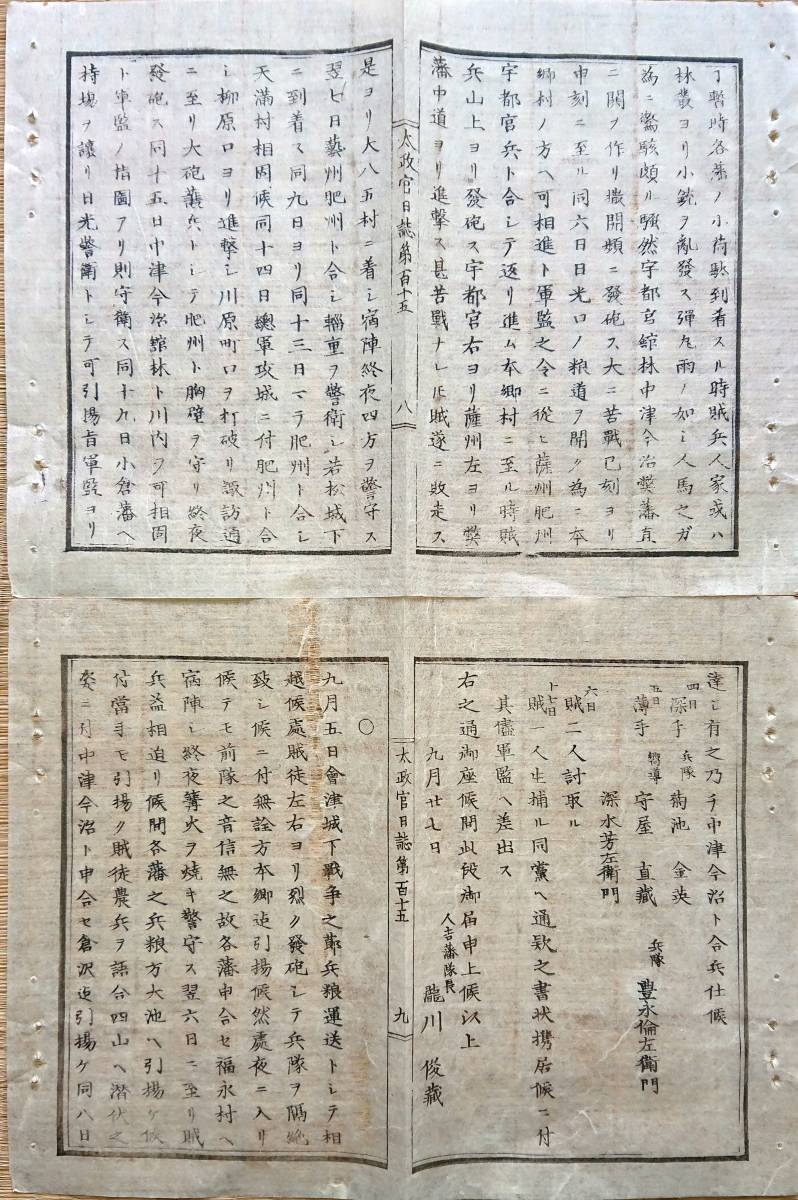 丁暫時各藩ノ小荷駄到着スル時賊兵人家或ハ
林叢ヨリ小銃ヲ亂發ス彈丸雨ノ如シ人馬之ガ
為ニ驚駭頗ル騒然宇都宮館林中津今治奬藩直
ニ開ヲ作リ撒開頻ニ發砲ス大ニ苦戰已刻ヨリ
申刻ニ至ル同六日日光口ノ粮道ヲ開ク為ニ本
郷村ノ方ヘ可相進ト軍監之令ニ從ヒ薩州肥州
宇都宮兵ト合シテ返リ進ム本郷村ニ至ル時賊
兵山上ヨリ發砲ス宇都宮右ヨリ薩州左ヨリ奬
藩中道ヨリ進撃ス甚苦戰ナレ圧賊遂ニ敗走ス
太政官日誌第百十五
八
是ヨリ大八五村ニ着シ宿陣終夜四方ヲ警守ス
翌七日藝州肥州ト合シ輜重ヲ警衛シ若松城下
ニ到着ス同九日ヨリ同十三日マテ肥州ト合シ
天滿村相固候同十四日總軍攻城ニ付肥州ト合
シ柳原口ヨリ進撃シ川原町口ヲ打破リ諏訪通
ニ至リ大砲護兵トシテ肥州ト胸壁ヲ守リ終夜
發砲ス同十五日中津今治館林ト川内ヲ可相固
ト軍監ノ指圖アリ則守衛ス同十九日小倉藩ヘ
持塲ヲ讓リ日光警衛トシテ可引揚旨軍監ヨリ
達シ有之乃チ中津今治ト合兵仕候
四日
深手 兵隊 菊池 金英
五日
薄手 嚮導 守屋 直藏 兵隊 豊永倫左衛門
深水芳左衛門
六日
賊二人討取ル
十七日
賊一人生捕ル同黨ヘ通欵之書状携居候ニ付
其儘軍監ヘ差出ス
右之通御座候間此段御届申上候以上
九月廿七日 人吉藩隊長 瀧川 俊藏
太政官日誌第百十五
九
〇
九月五日會津城下戰争之節兵粮運送トシテ相
越候處賊徒左右ヨリ烈ク發砲シテ兵隊ヲ隔絶
致シ候ニ付無詮方本郷迠引揚候然處夜ニ入リ
候テモ前隊之音信無之故各藩申合セ福永村ヘ
宿陣シ終夜篝火ヲ焼キ警守ス翌六日ニ至リ賊
兵益相迫リ候間各藩之兵粮方大池ヘ引揚ケ候
付當手モ引揚ク賊徒農兵ヲ語合四山ヘ潜伏之
ニ付中津今治ト申合セ倉沢迠引揚ケ同八日